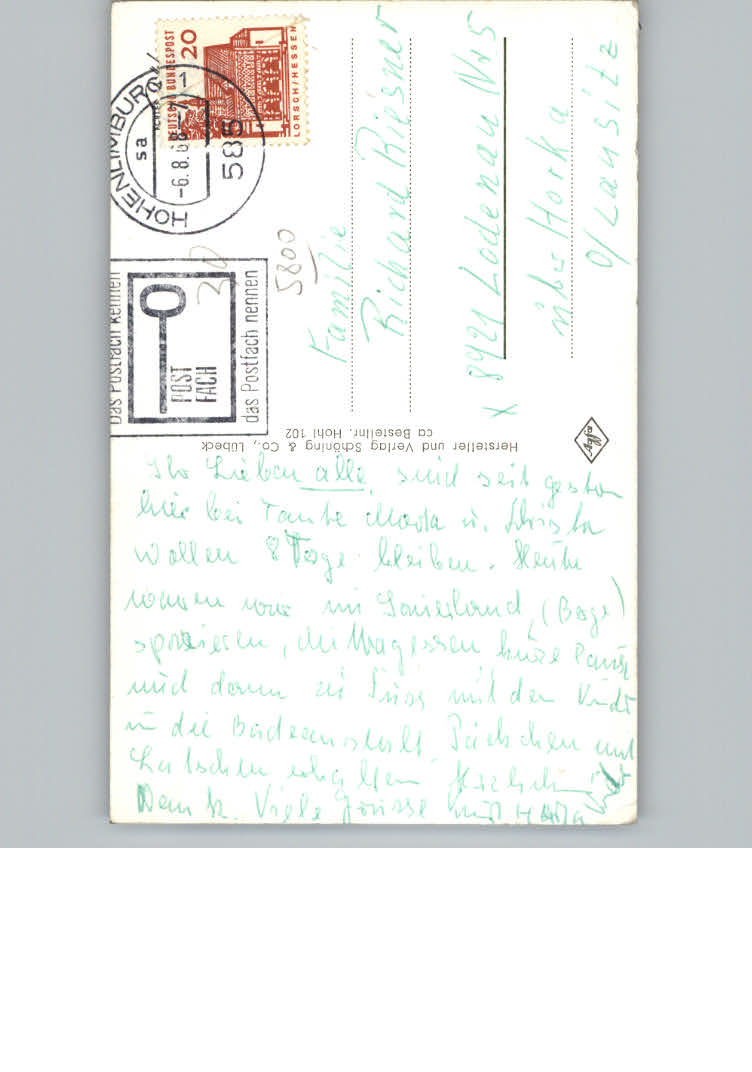 DEUTSCHE BUNDESPOST
20
LORSCH/HESSEN
HOHENLIMBURG
sa
-6.8.68-7
585
Das Postfach kennen
POST
FACH
das Postfach nennen
20
5800
Familie
Richard Riesner
X 8921 Lodenau Nr 5
über Horka
O/Lausitz
Hersteller und Verlag Schöning & Co., Lübeck
ca Bestellnr. Hohl 102
Ihr Lieben alle, sind seit gestern
hier bei Tante Marta u.
wollen 8 Tage bleiben. Heute
waren wir im Sauerland, (Berge)
spazieren, Mittagessen kurze Pause
und dann zu Fuss mit den
in die Badeanstalt Päckchen und
Latschen erhalten Herzlichen
Dank. Viele Grüsse